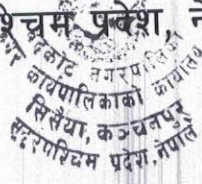 श्चिम प्रदेश ने
नगरपालिका
कार्यपालिकाको कार्यालय
सिसैया, कञ्चनपुर
सुदूरपश्चिम प्रदेश, नेपाल